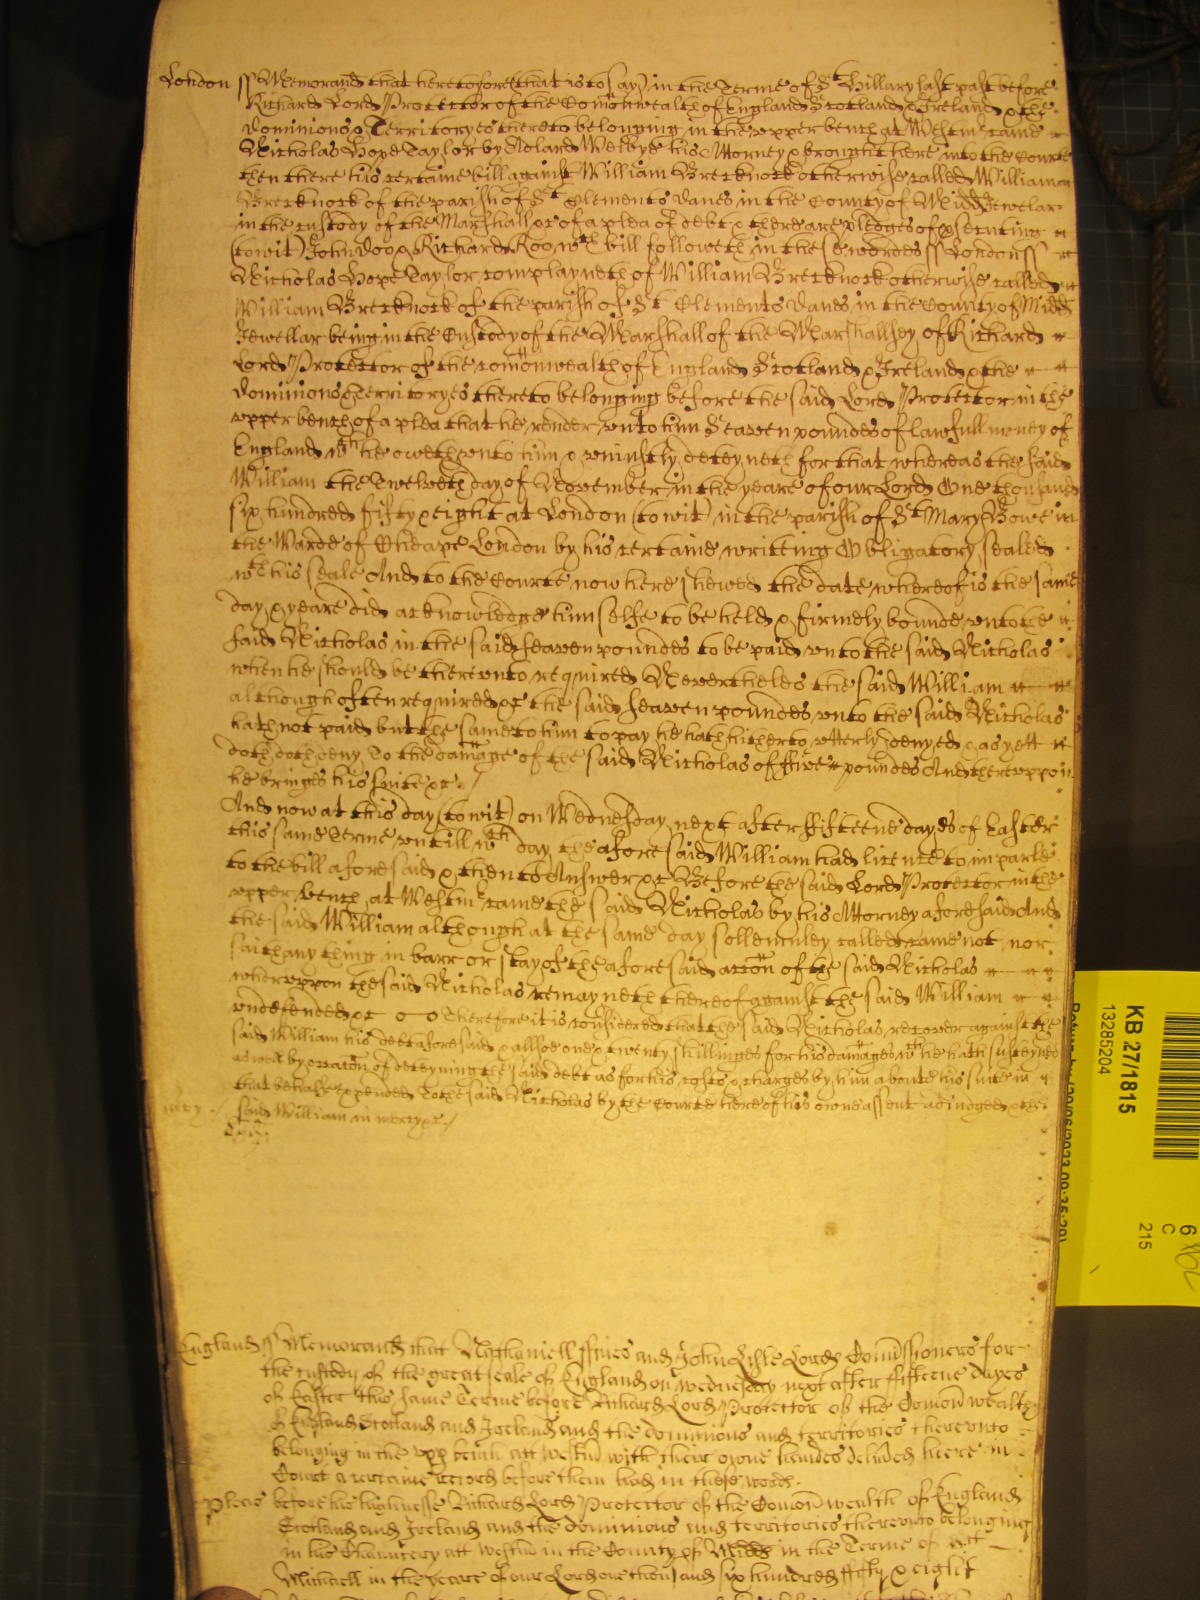 London ss Memorand that heretofore (that is to say) in the Terme of St Hillary last past before
Richard Lord Protector of the Comonwealth of England Scotland & Ireland & the
Dominions & Territoryes thereto belonging in the upper bench at Westmr came
Nicholas Hope Taylor by Adlard Welbye his Attorney & brought here into the Courte
then there his certaine bill against William Brecknock otherwise called William
Brecknock of the parish of St Clements Danes in the County of Midd Jewelar
in the custody of the Marshall &c of a plea of debt & there are pledges of prosecuting
(to wit) John Doo & Richard Roo wch bill followeth in these wordes ss London ss
Nicholas Hope Taylor complayneth of William Brecknock otherwise called
William Brecknock of the parish of St Clements Danes in the County of Midd
Jewellar being in the Custody of the Marshall of the Marshallsey of Richard
Lord Protector of the comonwealth of England Scotland & Ireland & the
Dominions & Territoryes thereto belonging before the said Lord Protector in the
upper bench of a plea that he render unto him Seaven poundes of lawfull money of
England wch he oweth unto him & uniustly deteyneth for that whereas the said
William the Twelveth day of November in the yeare of our Lord One thousand
six hundred fifty & eight at London (to wit) in the parish of St Mary Bowe in
the Warde of Cheape London by his certaine writeing Obligatory sealed
wth his seale And to the Courte now here shewed the date whereof is the same
day & yeare did acknowledge himselfe to be held & firmely bound unto the
said Nicholas in the said seaven poundes to be paid unto the said Nicholas
when he should be thereunto required Neverthelesse the said William
although often required &c the said seaven poundes unto the said Nicholas
hath not paid but the same to him to pay he hath hitherto utterly denyed & as yett
doth doth deny To the damage of the said Nicholas of ffive poundes And thereuppon
he bringes his suite &c /
And now at this day (to wit) on Wednesday next after ffifteene dayes of Easter
this same Terme untill wch day the aforesaid William had licence to imparle
to the bill aforesaid & then to Answer &c Before the said Lord Protector in the
upper bench at Westmr came the said Nicholas by his Attorney aforesaid And
the said William although at the same day sollemnley called came not nor
saith any thing in barr or stay of the aforesaid accon of the said Nicholas
whereuppon the said Nicholas remayneth thereof against the said William
undefended &c Therefore it is considered that the said Nicholas recover against the
said William his debt aforesaid & allsoe one & twenty shillinges for his damages wch he hath susteyned
as well by occasion of deteyning the said debt as for his costs & charges by him aboute his suite in
that behalfe expended To the said Nicholas by the Courte here of his owne assent adiudged & the
mcy / said William in mercy &c /
England ss Memorand that Nathaniell ffines and John Lisle Lords Comissioners for
the custody of the great seale of England on wednesday next after fifteene dayes
of Easter this same Terme before Richard Lord Protector of the Comonwealth
of England Scotland and Ireland and the dominions and territories thereunto
belonging in the upp bench att westm with their owne handes delivered heere in
Court a certaine record before them had in these words.
Pleas before his highnesse Richard Lord Protector of the Comonwealth of England
Scotland and Ireland and the dominions and territories thereunto belonging
in his Chauncery att westm in the County of Midds in the Terme of St
Michaell in the yeare of our Lord one thousand six hundred fifty & eight
KB 27/1815
13285204
6
C
215